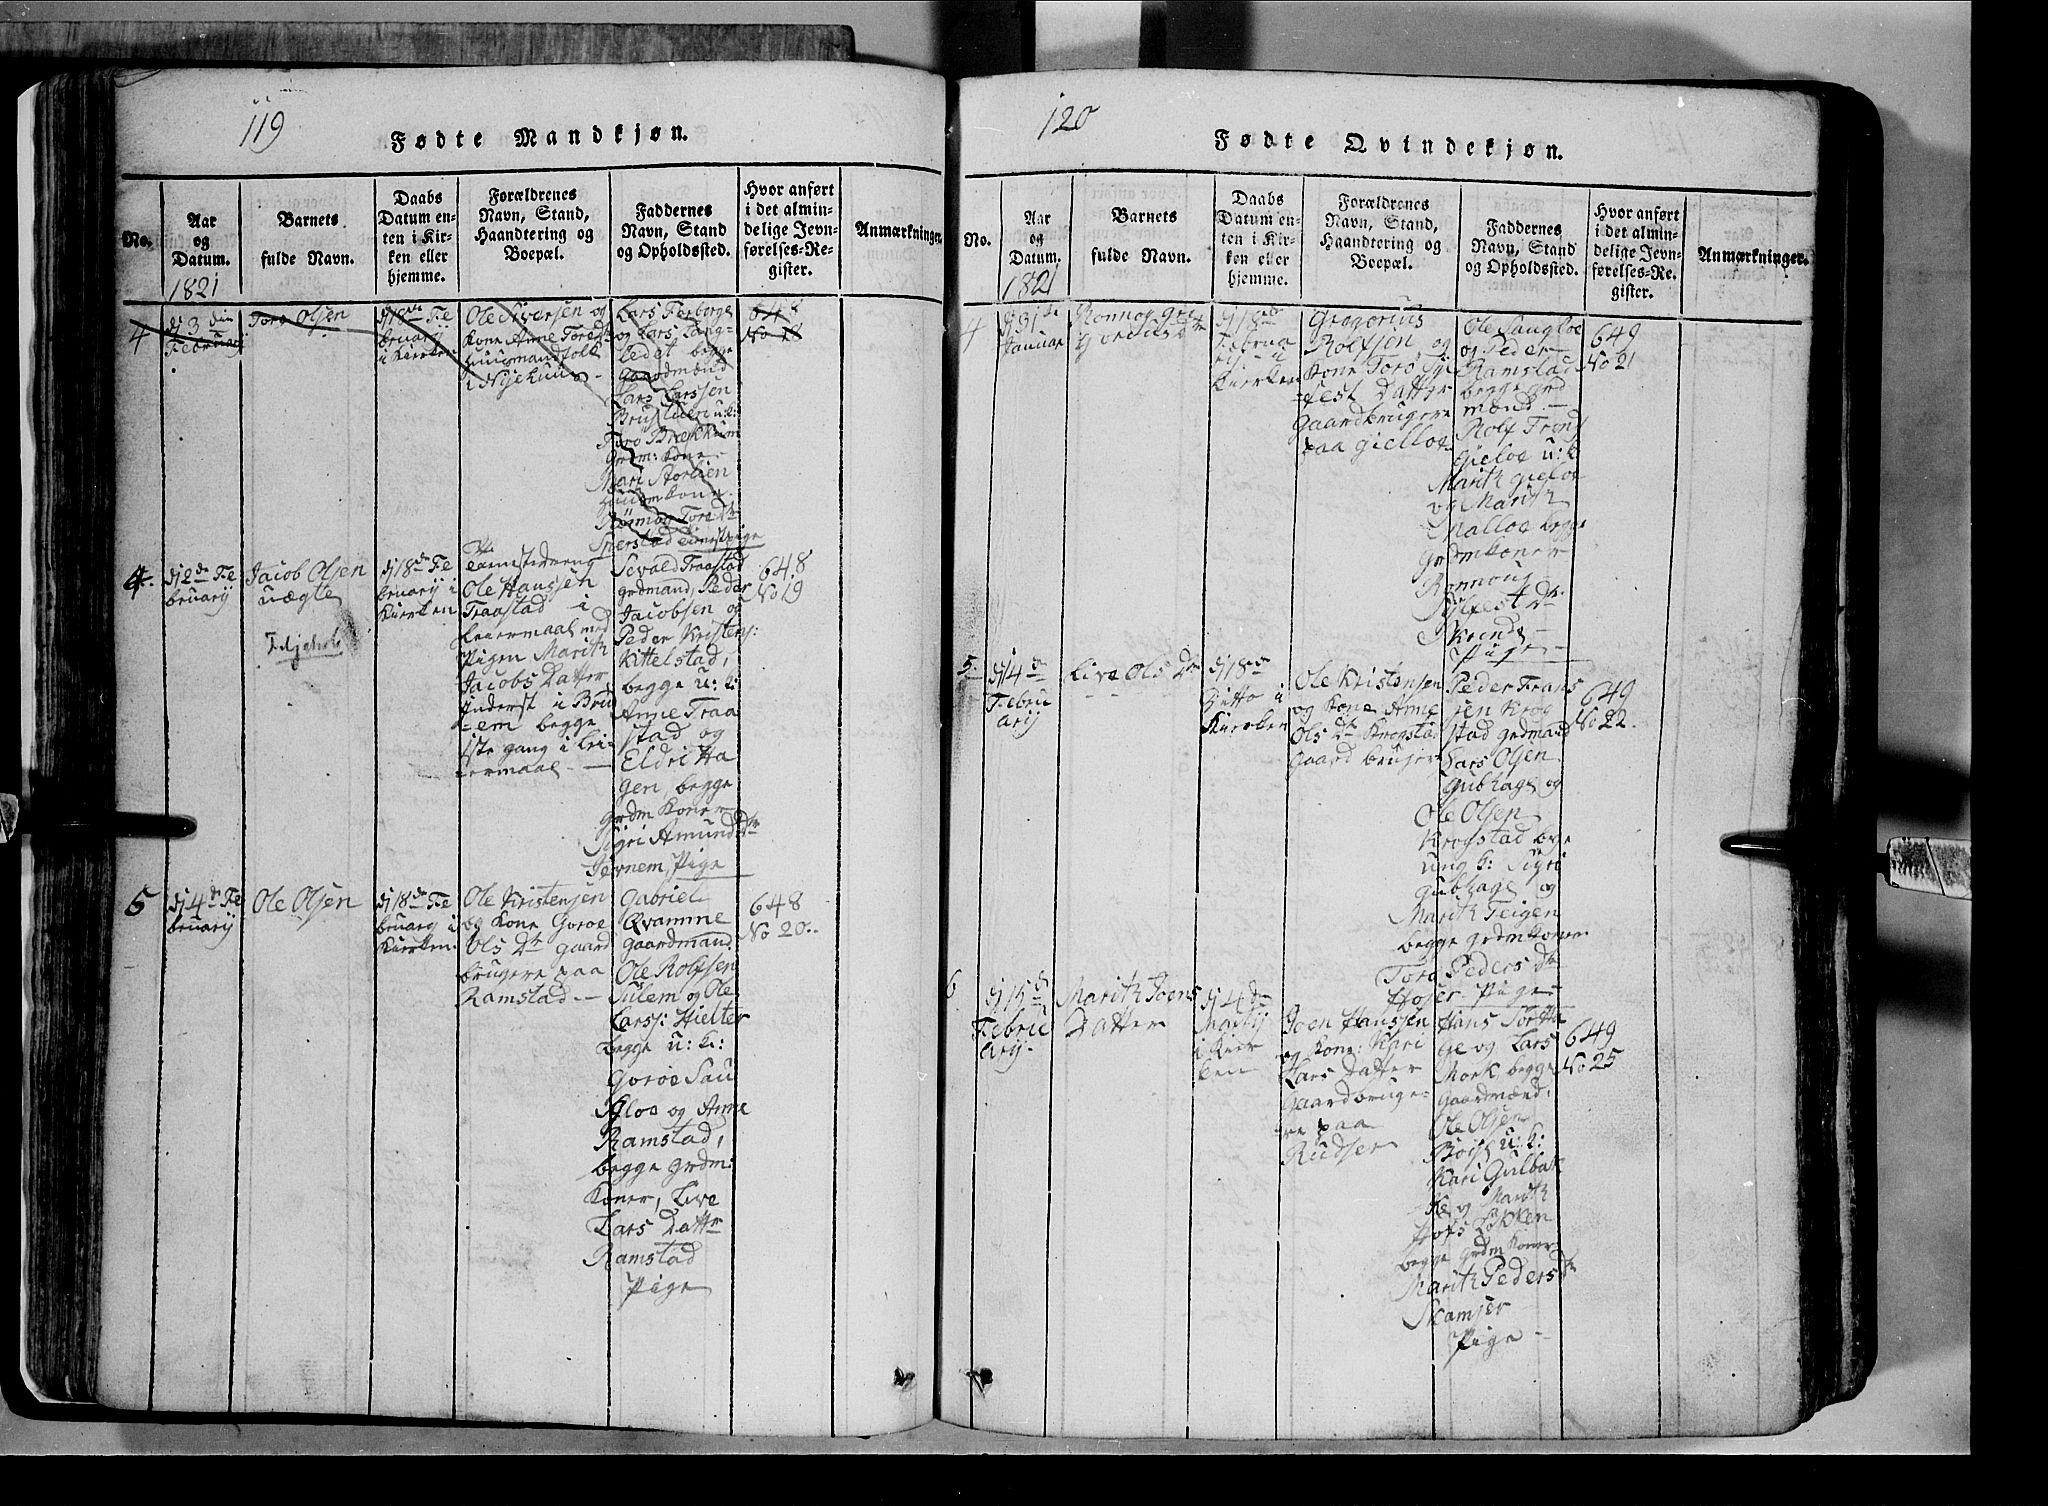 119
Fødte Mandkjøn.
No.
Aar
og
Datum.
1821
Barnets
fulde Navn.
Daabs
Datum en-
ten i Kir-
ken eller
hjemme.
Forældrenes
Navn, Stand,
Haandtering og
Boepæl.
Faddernes
Navn, Stand
og Opholdssted.
Hvor anført
i det almin-
delige Jevn-
førelses-Re-
gister.
Anmærkninger.
4
dj 3 die
Februarj
Toro Olsen
dj 18de Fe
bruarj
i Kierken
Ole Siversen og
Kone Anne Toredtr
Huusmandfolk
i Nyehuus
Lars Forberge
og Lars Lang-
ledet begge
gaardmænd
Lars Larssen
Brustuen u: k:
Toro Brekkum
grdm: Kone
Mari Storlien
Huusm kone
Rønnog Toredtr
Sperstad tienistpige
648
No 18
4.
dj 2de Fe
bruarij
Jacob Olsen
uægte
dj 18de Fe
bruarij i
Kierken
tienistdreng
Ole Hanssen
Traastad i
Leiermaal med
Pigen Marith
Jacobs Datter
Inderst i Bru
em begge
1ste gang i Lei
ermaal
Sevald Traastad
grdmand, Peder
Jacobsen og
Peder Kristens:
Kittelstad,
begge u: k:
Anne Traa
stad og
Eldri Ha
gen, begge
grdm Koner
Sigri Amundsdtr
Jernem, Pige
648
No 19
5
dj 4de Fe
bruarij
Ole Olsen
dj 18de Fe
bruarij i
Kierken
Ole Kristensen
og Kone Goroe
Ols Dtr gaard
brugere paa
Ramstad
Gabriel
Qvamme
gaardmand
Ole Rolfsen
Sulem og Ole
Larss: Hielter
begge u: k:
Goroe Sau
gloe og Anne
Ramstad,
begge grdm:
Koner, Live
Lars Dattr
Ramstad
Pige
648
No 20
120
Fødte Qvindekjøn.
No.
Aar
og
Datum.
1821
Barnets
fulde Navn.
Daabs
Datum en-
ten i Kir-
ken eller
hjemme.
Forældrenes
Navn, Stand,
Haandtering og
Boepæl.
Faddernes
Navn, Stand
og Opholdssted.
Hvor anført
i det almin-
delige Jevn-
førelses-Re-
gister.
Anmærkninger.
4
dj 31te
Januar
Ronnog Gre
goriis Dtr
dj 18de
Februa
rij i
Kierken
Gregorius
Rolfsen og
Kone Toro Syl
fest Datter
Gaardbrugere
paa Gielloe
Ole Saugloe
og Peder
Ramstad
begge grd
mænd
Rolf Trons
Gieloe u: k:
Marith Gieloe
og Marith
Malloe begge
grdmkoner
Ronnoug
Sylfest Dtr
Skiende
Pige
649
No 21
5.
dj 14de
Febru
arij
Live Ols Dtr
dj 18de
Ditto i
Kierken
Ole Kristensen
og Kone Anne
Ols Dtr Krogstad
Gaard bruger
Peder Frans
sen Krog
stad grdmand
Lars Olsen
Gubhage og
Ole Olsen
Krogstad bege
ung k: Sigri
Gubhage og
Marith Teigen
begge grdmkoner
Toro Peders Dtr
Hoser Pige
649
No 22
6
dj 15de
Febru
arij
Marith Joens
Datter
dj 4de
Martij
i Kier
ken
Joen Hanssen
og Kone: Kari
Lars Datter
Gaardbruge-
re paa
Rudser
Hans Sortha
ge og Lars
Mork, begge
gaardmænd,
Ole Olsen
u: k:
Kari Gulbak
ke og Marith
Hofs Løkken
begge grdm Koner
Marith Pedersdtr
Skamser
Pige
649
No 25